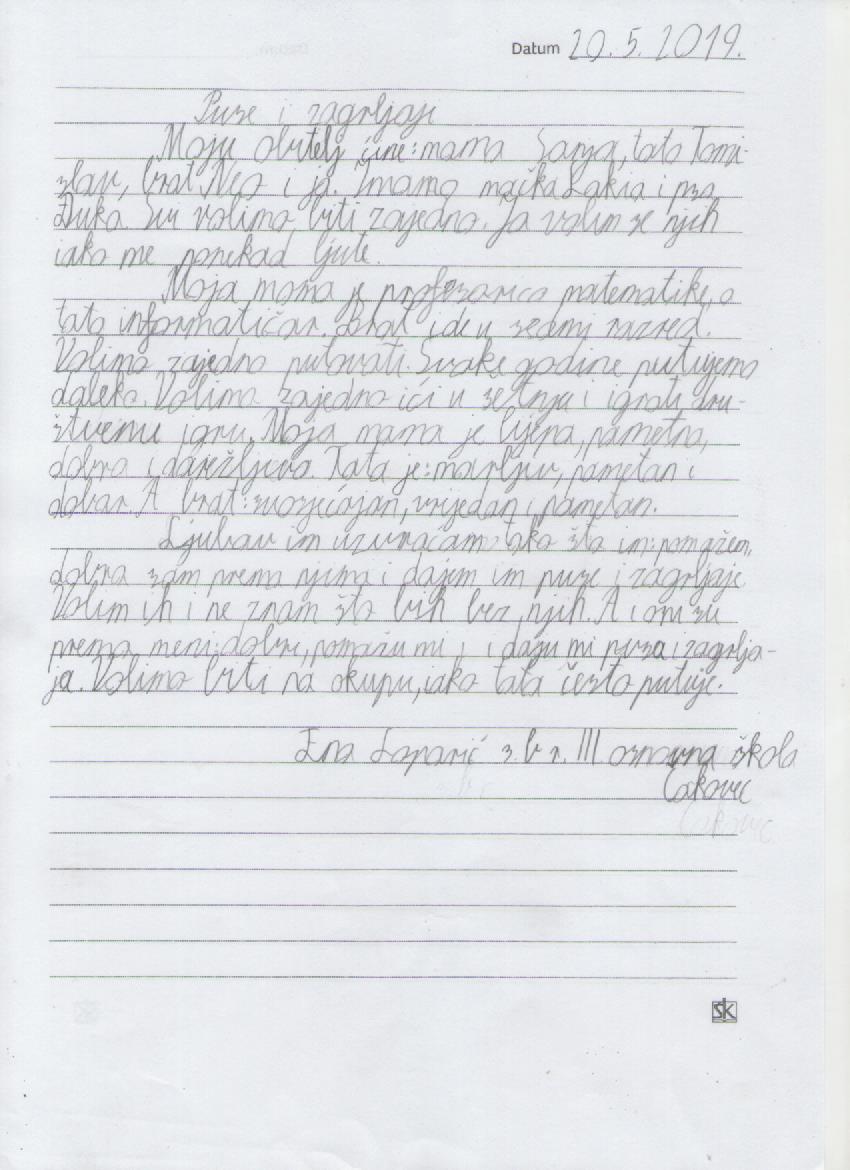 Datum 20.5.2019.
Puse i zagrljaji
Moju obitelj čine: mama Sanja, tata Tomi-
slav, brat Neo i ja. Imamo mačka Lakia i psa
Đuka. Svi volimo biti zajedno. Ja volim sve njih
iako me ponekad ljute.
Moja mama je profesorica matematike, a
tata informatičar. Brat ide u sedmi razred.
Volimo zajedno putovati. Svake godine putujemo
daleko. Volimo zajedno ići u šetnju i igrati dru-
štvenu igru. Moja mama je lijepa, pametna,
dobra i darežljiva. Tata je: marljiv, pametan i
dobar. A brat: suosjećajan, vrijedan i pametan.
Ljubav im uzvraćam tako što im: pomažem,
dobra sam prema njima i dajem im puse i zagrljaje.
Volim ih i ne znam što bih bez njih. A i oni su
prema meni dobri, pomažu mi i daju mi pusa i zagrlja-
ja. Volimo biti na okupu, iako tata često putuje.
Ena 3. b r. III osnovna škola
Čakovec
Čakovec
šk